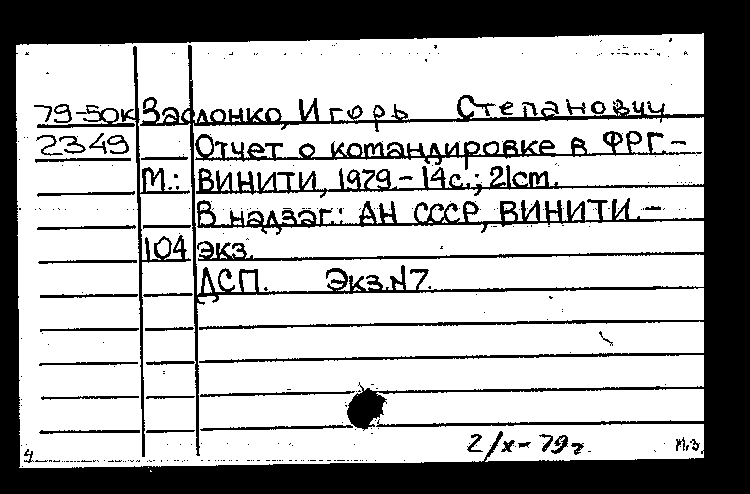 79-50к Заслонко, Игорь Степанович
2349 Отчет о командировке в ФРГ.-
М.: ВИНИТИ, 1979.- 14с.; 21cm.
В надзаг.: АН СССР, ВИНИТИ.-
104 экз.
ДСП. Экз.№7.
2/x-79г
4 М.З.